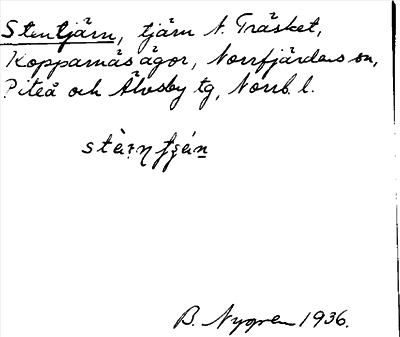 Stentjärn, tjärn N. Träsket,
Kopparnäs ägor, Norrfjärdens sn,
Piteå och Älvsby tg, Norrb. l.
B. Nygren 1936.